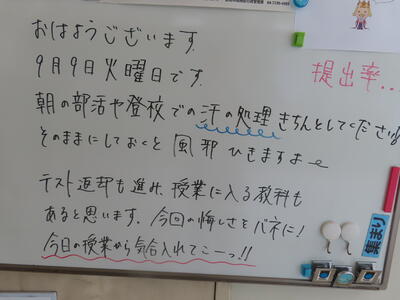 おはようございます.
9月9日火曜日です.
提出率...
朝の部活や登校での汗の処理きちんとしてくださいね
そのままにしておくと風邪ひきますよー
テスト返却も進み、授業に入る教科も
あると思います. 今回の悔しさをバネに!
今日の授業から気合入れてこーっ!!
集まり